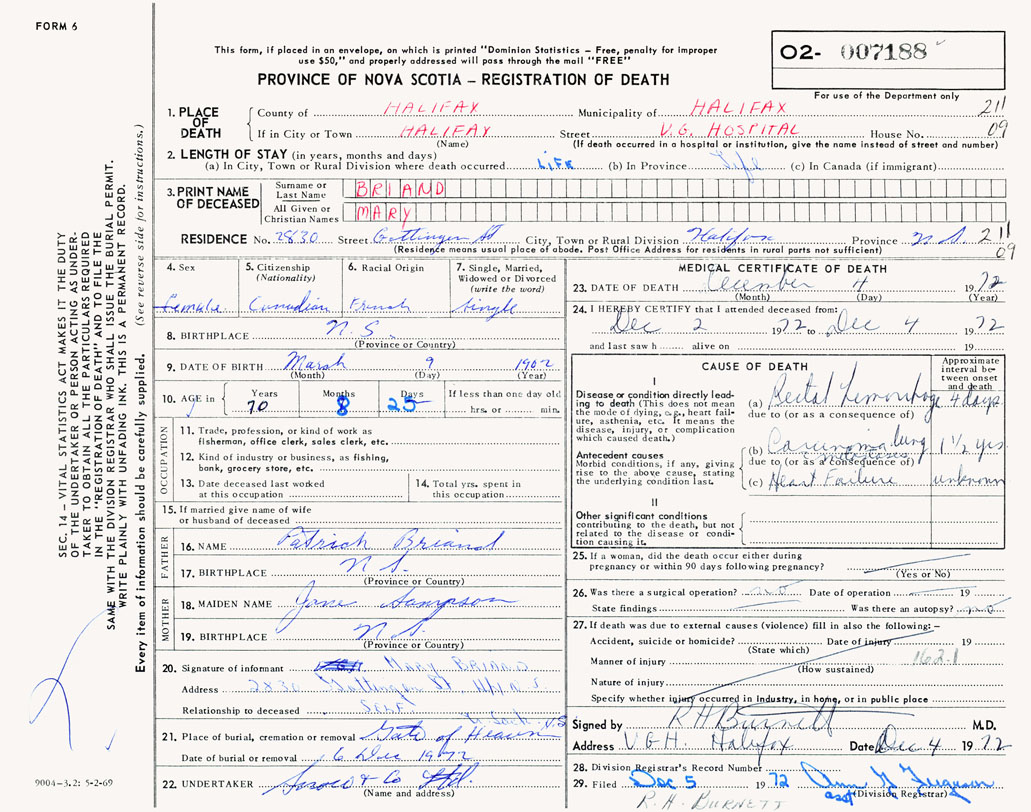 FORM 6
This form, if placed in an envelope, on which is printed "Dominion Statistics – Free, penalty for improper
use $50," and properly addressed will pass through the mail "FREE"
PROVINCE OF NOVA SCOTIA – REGISTRATION OF DEATH
O2- 007188
For use of the Department only
1. PLACE OF DEATH
County of HALIFAX Municipality of HALIFAX 211
If in City or Town HALIFAX Street V.G. HOSPITAL House No. 09
(Name) (If death occurred in a hospital or institution, give the name instead of street and number)
2. LENGTH OF STAY (in years, months and days)
(a) In City, Town or Rural Division where death occurred LIFE (b) In Province Life (c) In Canada (if immigrant)
3. PRINT NAME OF DECEASED
Surname or Last Name BRIAND
All Given or Christian Names MARY
RESIDENCE No. 2830 Street Gottingen St City, Town or Rural Division Halifax Province N S 211
(Residence means usual place of abode. Post Office Address for residents in rural parts not sufficient) 09
4. Sex
Female
5. Citizenship
(Nationality)
Canadian
6. Racial Origin
French
7. Single, Married,
Widowed or Divorced
(write the word)
Single
8. BIRTHPLACE N.S.
(Province or Country)
9. DATE OF BIRTH March 9 1902
(Month) (Day) (Year)
10. AGE in Years Months Days If less than one day old
70 8 25 hrs. or min.
OCCUPATION
11. Trade, profession, or kind of work as
fisherman, office clerk, sales clerk, etc.
12. Kind of industry or business, as fishing,
bank, grocery store, etc.
13. Date deceased last worked
at this occupation
14. Total yrs. spent in
this occupation
15. If married give name of wife
or husband of deceased
FATHER
16. NAME Patrick Briand
17. BIRTHPLACE N S.
(Province or Country)
MOTHER
18. MAIDEN NAME Jane Sampson
19. BIRTHPLACE N.S.
(Province or Country)
20. Signature of informant MARY BRIAND
Address 2830 Gottingen St N.S
Relationship to deceased SELF
L. Sack. N.S
21. Place of burial, cremation or removal Gate of Heaven
Date of burial or removal 6 Dec 1972
22. UNDERTAKER & Co Ltd.
(Name and address)
MEDICAL CERTIFICATE OF DEATH
23. DATE OF DEATH December 4 1972
(Month) (Day) (Year)
24. I HEREBY CERTIFY that I attended deceased from:
Dec 2 1972 to Dec 4 1972
and last saw h alive on 19
CAUSE OF DEATH
Approximate
interval be-
tween onset
and death
I
Disease or condition directly lead-
ing to death (This does not mean
the mode of dying, e.g., heart fail-
ure, asthenia, etc. It means the
disease, injury, or complication
which caused death.)
(a) Rectal Hemorrhage 4 days
due to (or as a consequence of)
Antecedent causes
Morbid conditions, if any, giving
rise to the above cause, stating
the underlying condition last.
(b) Carcinoma lung 1 1/2 yrs.
c metastases
due to (or as a consequence of)
(c) Heart Failure unknown
II
Other significant conditions
contributing to the death, but not
related to the disease or condi-
tion causing it.
25. If a woman, did the death occur either during
pregnancy or within 90 days following pregnancy?
(Yes or No)
26. Was there a surgical operation? no Date of operation 19
State findings Was there an autopsy? no
27. If death was due to external causes (violence) fill in also the following: –
Accident, suicide or homicide? Date of injury 19
(State which)
Manner of injury 162.1
(How sustained)
Nature of injury
Specify whether injury occurred in Industry, in home, or in public place
Signed by R H Burnett M.D.
Address V G H. Halifax Date Dec 4 1972
28. Division Registrar's Record Number
29. Filed Dec 5 1972 Ann G Ferguson
asst (Division Registrar)
R. H. BURNETT
SEC. 14 – VITAL STATISTICS ACT MAKES IT THE DUTY
OF THE UNDERTAKER OR PERSON ACTING AS UNDER-
TAKER TO OBTAIN ALL THE PARTICULARS REQUIRED
IN THE "REGISTRATION OF DEATH" AND TO FILE THE
SAME WITH THE DIVISION REGISTRAR WHO SHALL ISSUE THE BURIAL PERMIT.
WRITE PLAINLY WITH UNFADING INK. THIS IS A PERMANENT RECORD.
Every item of information should be carefully supplied. (See reverse side for instructions.)
9004-3.2: 5-2-69